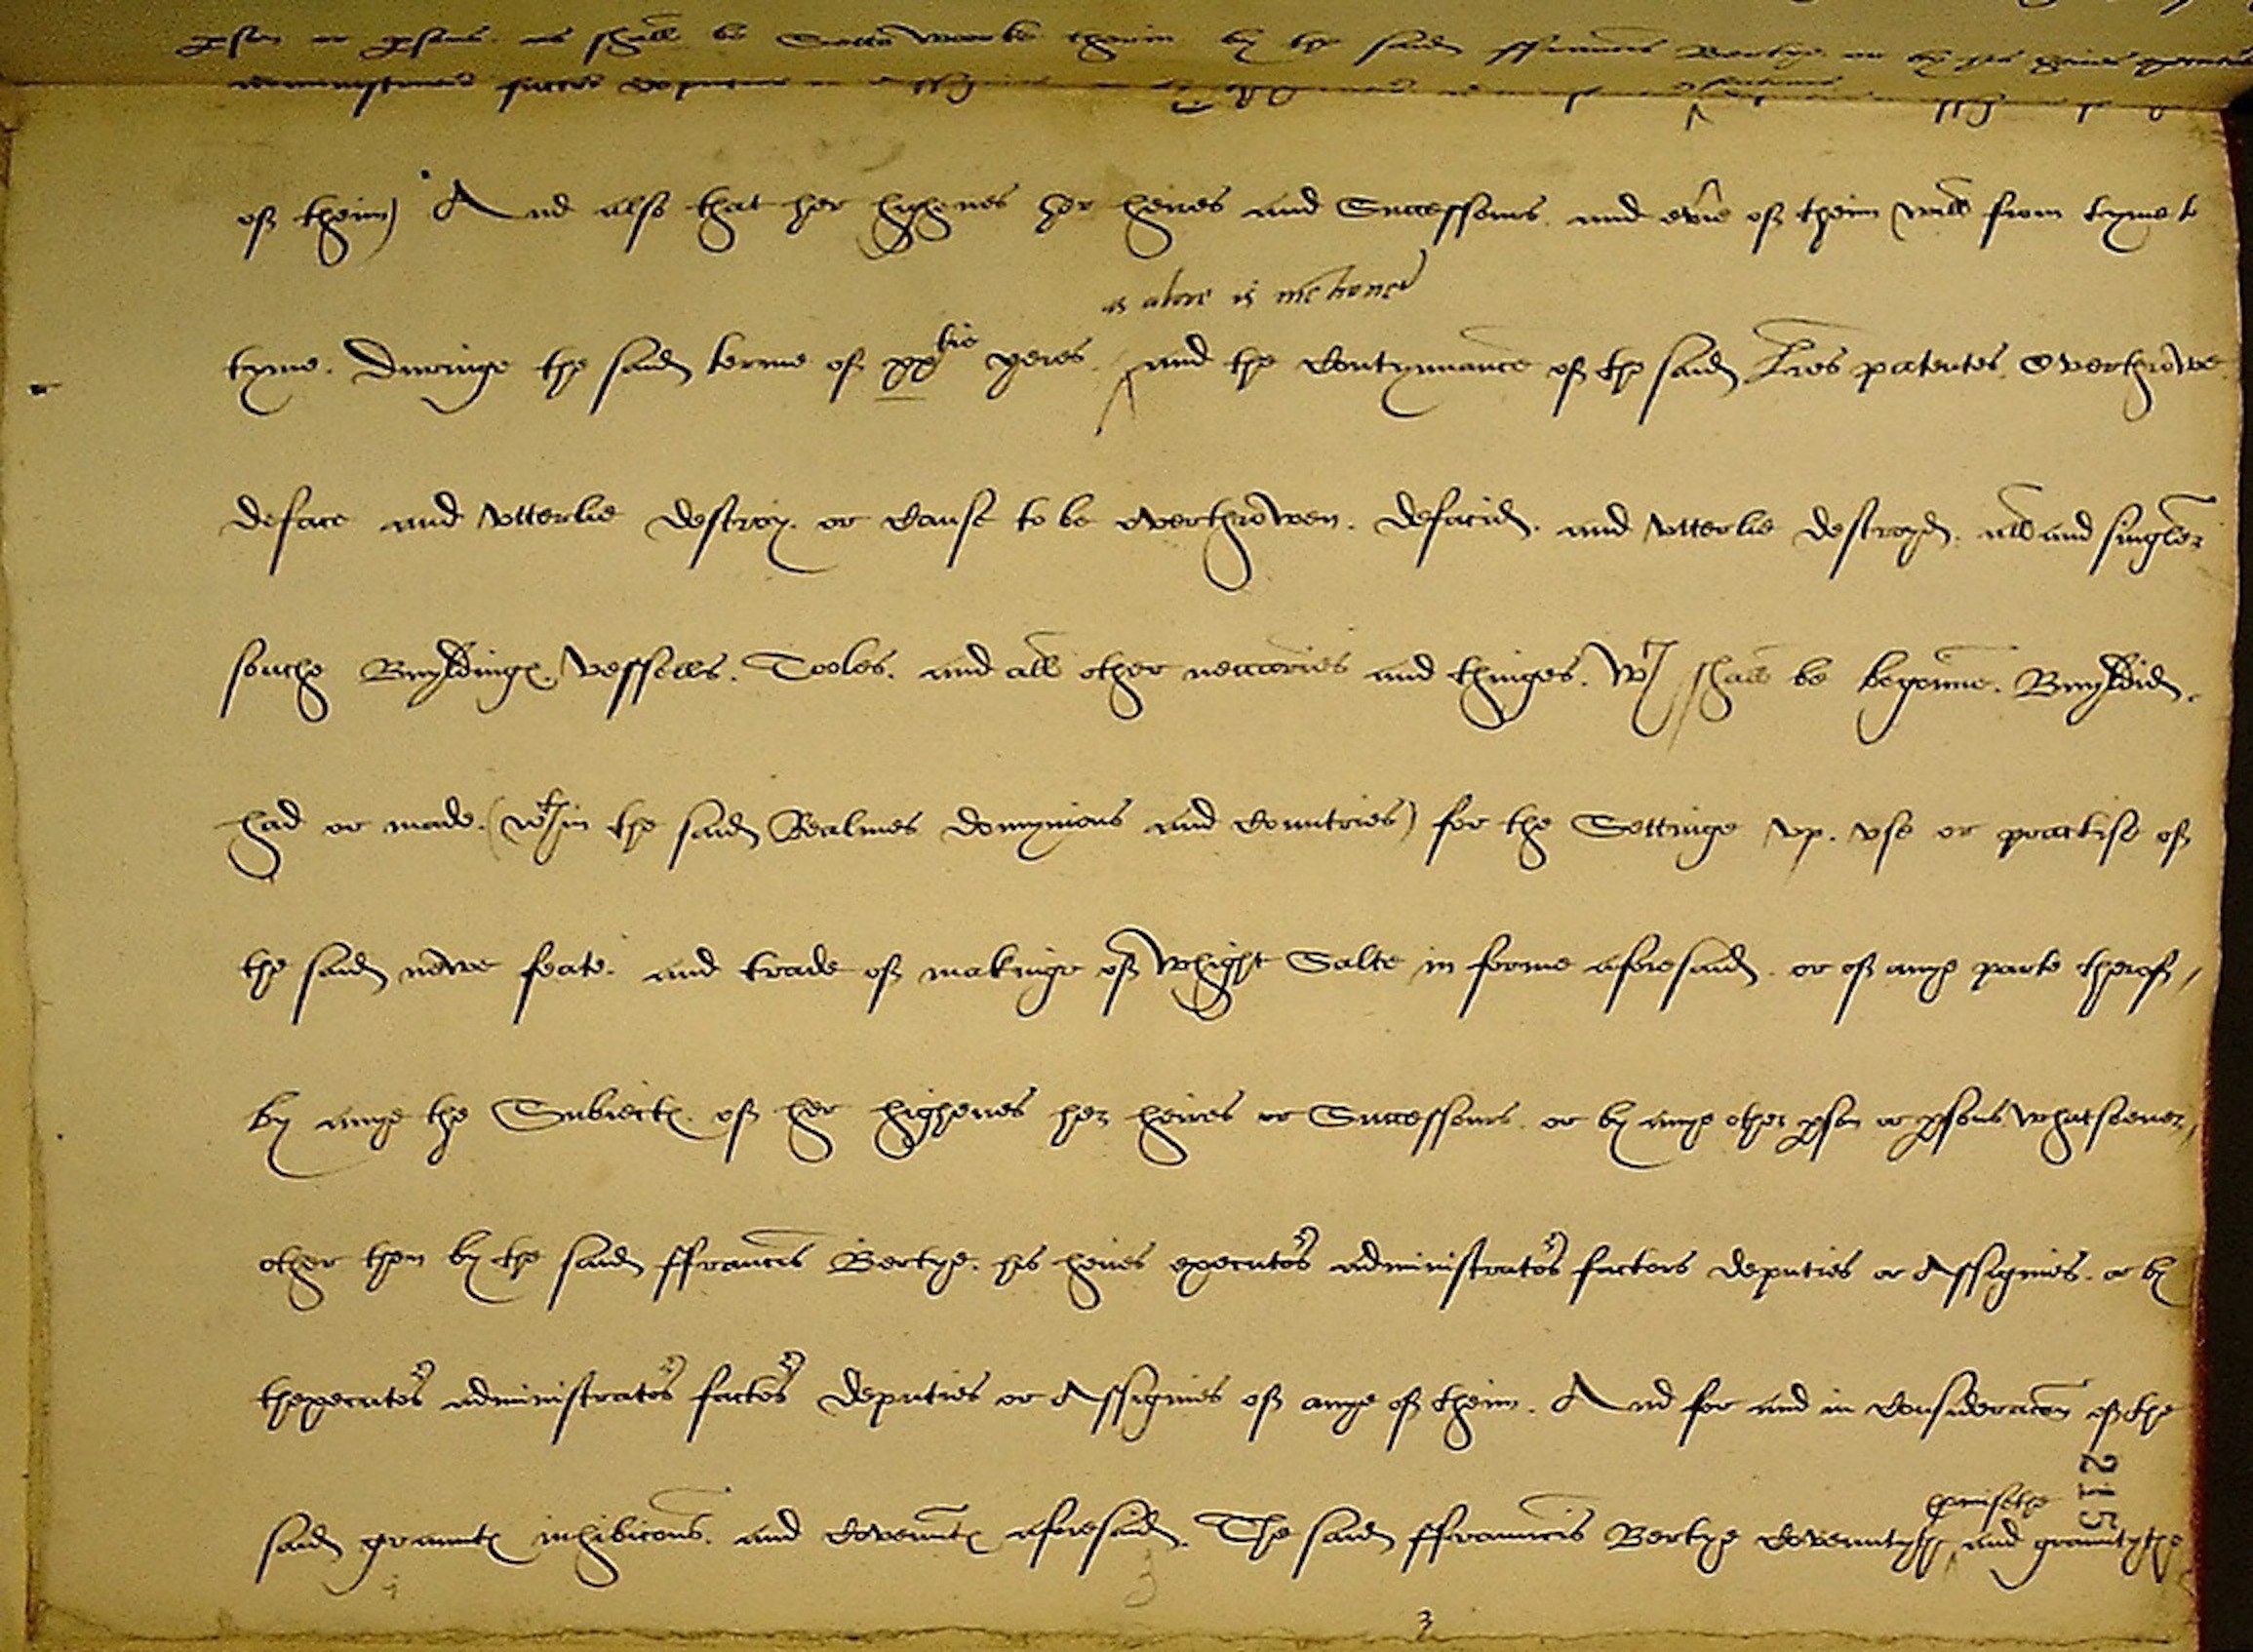 pson or psons as shall be Sett a worke therin by the said ffrauncis Bertye or by his heires
administrators factors deputies
of theim) And also that her highenes her heires and Successours and evrie of theim will from tyme to
as above is mencioned
tyme. Duringe the said terme of xxtie yeres and the Contynuance of the said Lres patentes Overthrowe
deface and vtterlie destroy or Cause to be overthrowen. defacid. and vtterlie destroyd. all and singler
souche Buyldinges. vessells. Tooles. and all other neccories and thinges. wch shall be begonne. Buyldid.
had or made. (wthin the said Realmes domynions and Countries) for the Settinge vp. vse or practise of
the said newe feate. and trade of makinge of whight Salte in forme aforesaid. or of anye parte therof,
by anye the Subiectes of her highenes her heires or Successours. or by anye other pson or psons whatsoever,
other then by the said ffrauncis Bertye. his heires executors administrators factors deputies or Assignies. or by
thexecutors administrators factors deputies or Assignies of anye of theim. And for and in Consideracon of the
promisethe
said grauntes inhibicons. and Covenntes aforesaid. The said ffrauncis Bertye Covenntythe and grauntythe
215
3